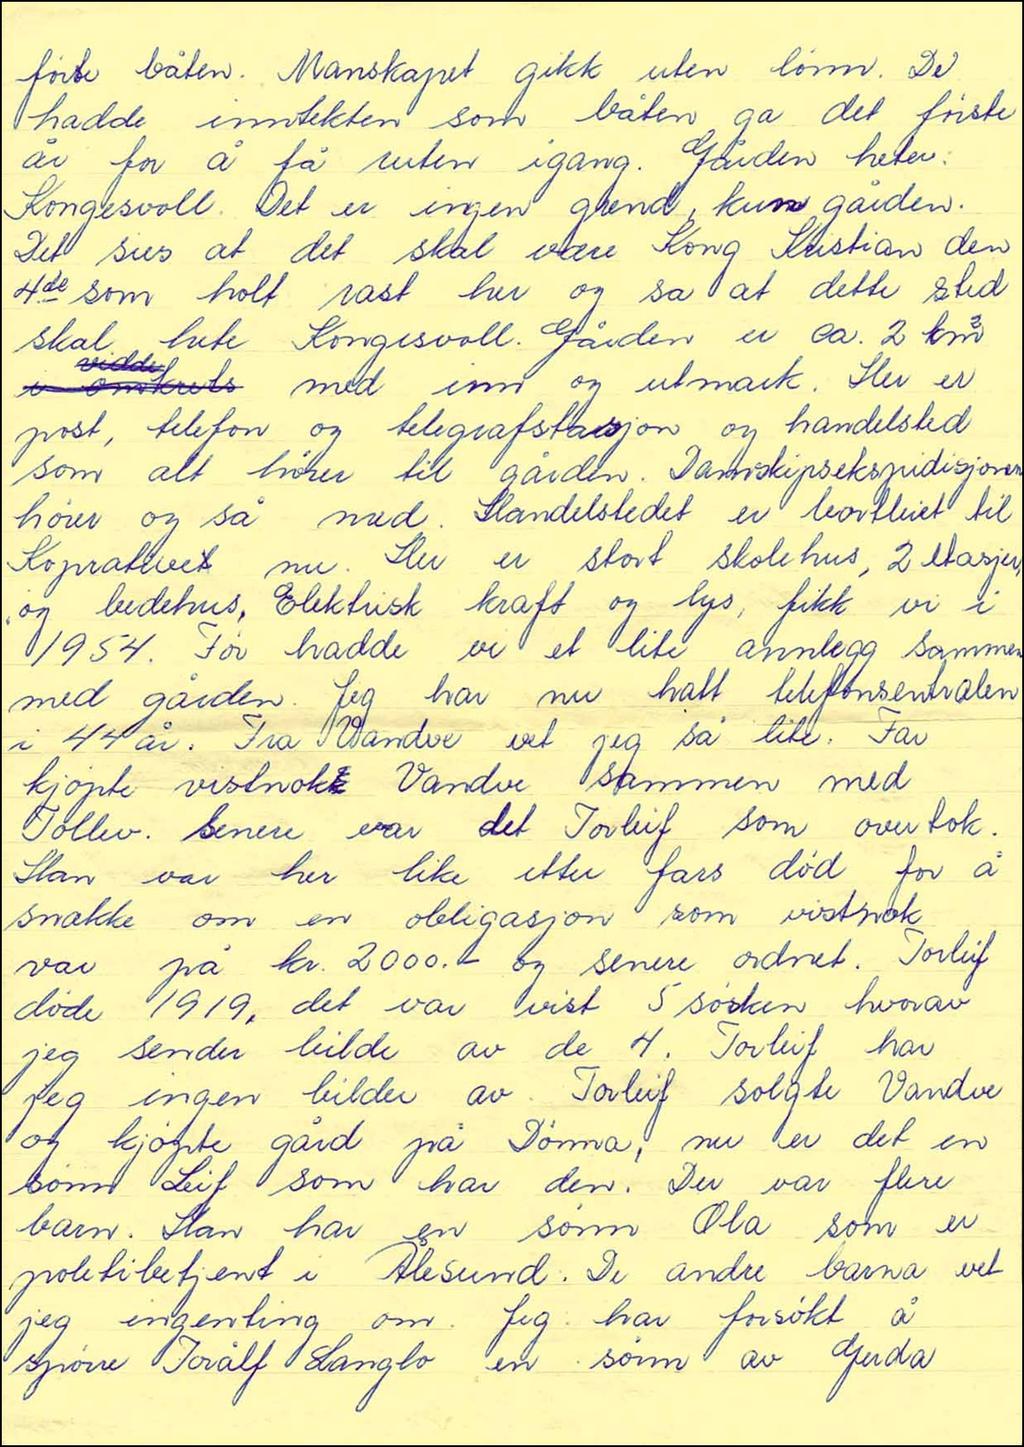 førte båten. Manskapet gikk uten lønn. De
hadde inntekten som båten ga det første
år for å få ruten igang. Gården heter:
Kongesvoll. Det er ingen grend, kun gården.
Det sies at det skal være Kong Kristian den
4de som holt rast her og sa at dette sted
skal hete Kongesvoll. Gården er ca. 2 km²
vidde
i omkrets med inn og utmark. Her er
post, telefon og telegrafstasjon og handelsted
som alt hører til gården. Damskipsekspidisjonen
hører og så med. Handelstedet er bortleiet til
Kopratuvet nu. Her er stort skolehus, 2 etasjer,
og bedehus, Elektrisk kraft og lys, fikk vi i
1954. Før hadde vi et lite annlegg sammen
med gården. Jeg har nu hatt telefonsentralen
i 44 år. Fra Vandve vet jeg så lite. Far
kjøpte vistnok Vandve sammen med
Tollev. Senere var det Torleif som overtok.
Han var her like etter fars død for å
snakke om en obligasjon som vistnok
var på kr. 2000.- og senere ordnet. Torleif
døde 1919, det var vist 5 søsken hvorav
jeg sender bilde av de 4. Torleif har
jeg ingen bilder av. Torleif solgte Vandve
og kjøpte gård på Dønna, nu er det en
sønn Leif som har den. Der var flere
barn. Han har en sønn Ola som er
poletibetjent i Ålesund. De andre barna vet
jeg ingenting om. Jeg har forsøkt å
spørre Torålf Langlo en sønn av Gerda